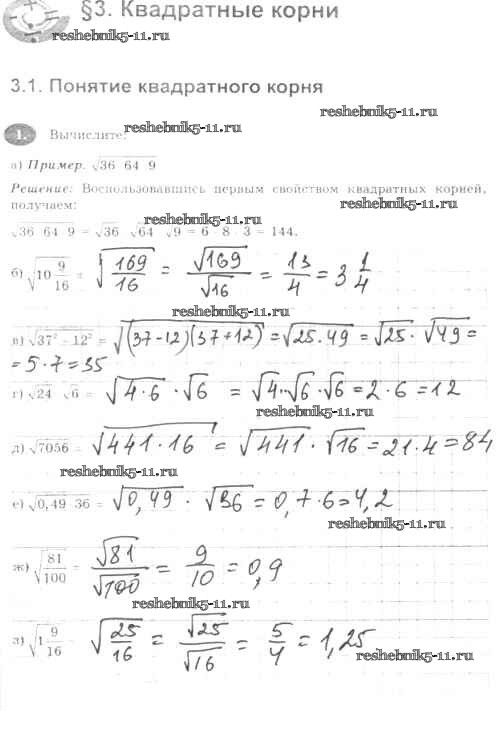 §3. Квадратные корни
reshebnik5-11.ru
3.1. Понятие квадратного корня
reshebnik5-11.ru
1. Вычислите:
reshebnik5-11.ru
а) Пример. √36 64 9
Решение: Воспользовавшись первым свойством квадратных корней,
получаем:
reshebnik5-11.ru
reshebnik5-11.ru
√36 64 9 = √36 √64 √9 = 6 8 3 = 144.
б) √10 9/16 = √169/16 = √169/√16 = 13/4 = 3 1/4
reshebnik5-11.ru
в) √37² - 12² = √(37-12)(37+12) = √25·49 = √25 · √49 =
= 5·7 = 35
г) √24 √6 = √4·6 · √6 = √4·√6·√6 = 2·6 = 12
reshebnik5-11.ru
д) √7056 = √441·16 = √441 · √16 = 21·4 = 84
reshebnik5-11.ru
е) √0,49 36 = √0,49 · √36 = 0,7·6 = 4,2
reshebnik5-11.ru
ж) √81/100 = √81/√100 = 9/10 = 0,9
reshebnik5-11.ru
з) √1 9/16 = √25/16 = √25/√16 = 5/4 = 1,25
reshebnik5-11.ru